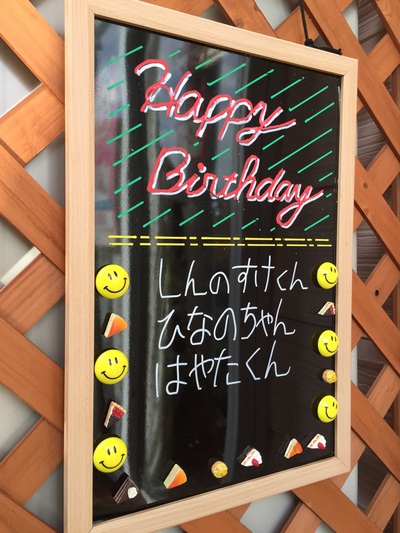 Happy
Birthday
しんのすけくん
ひなのちゃん
はやたくん